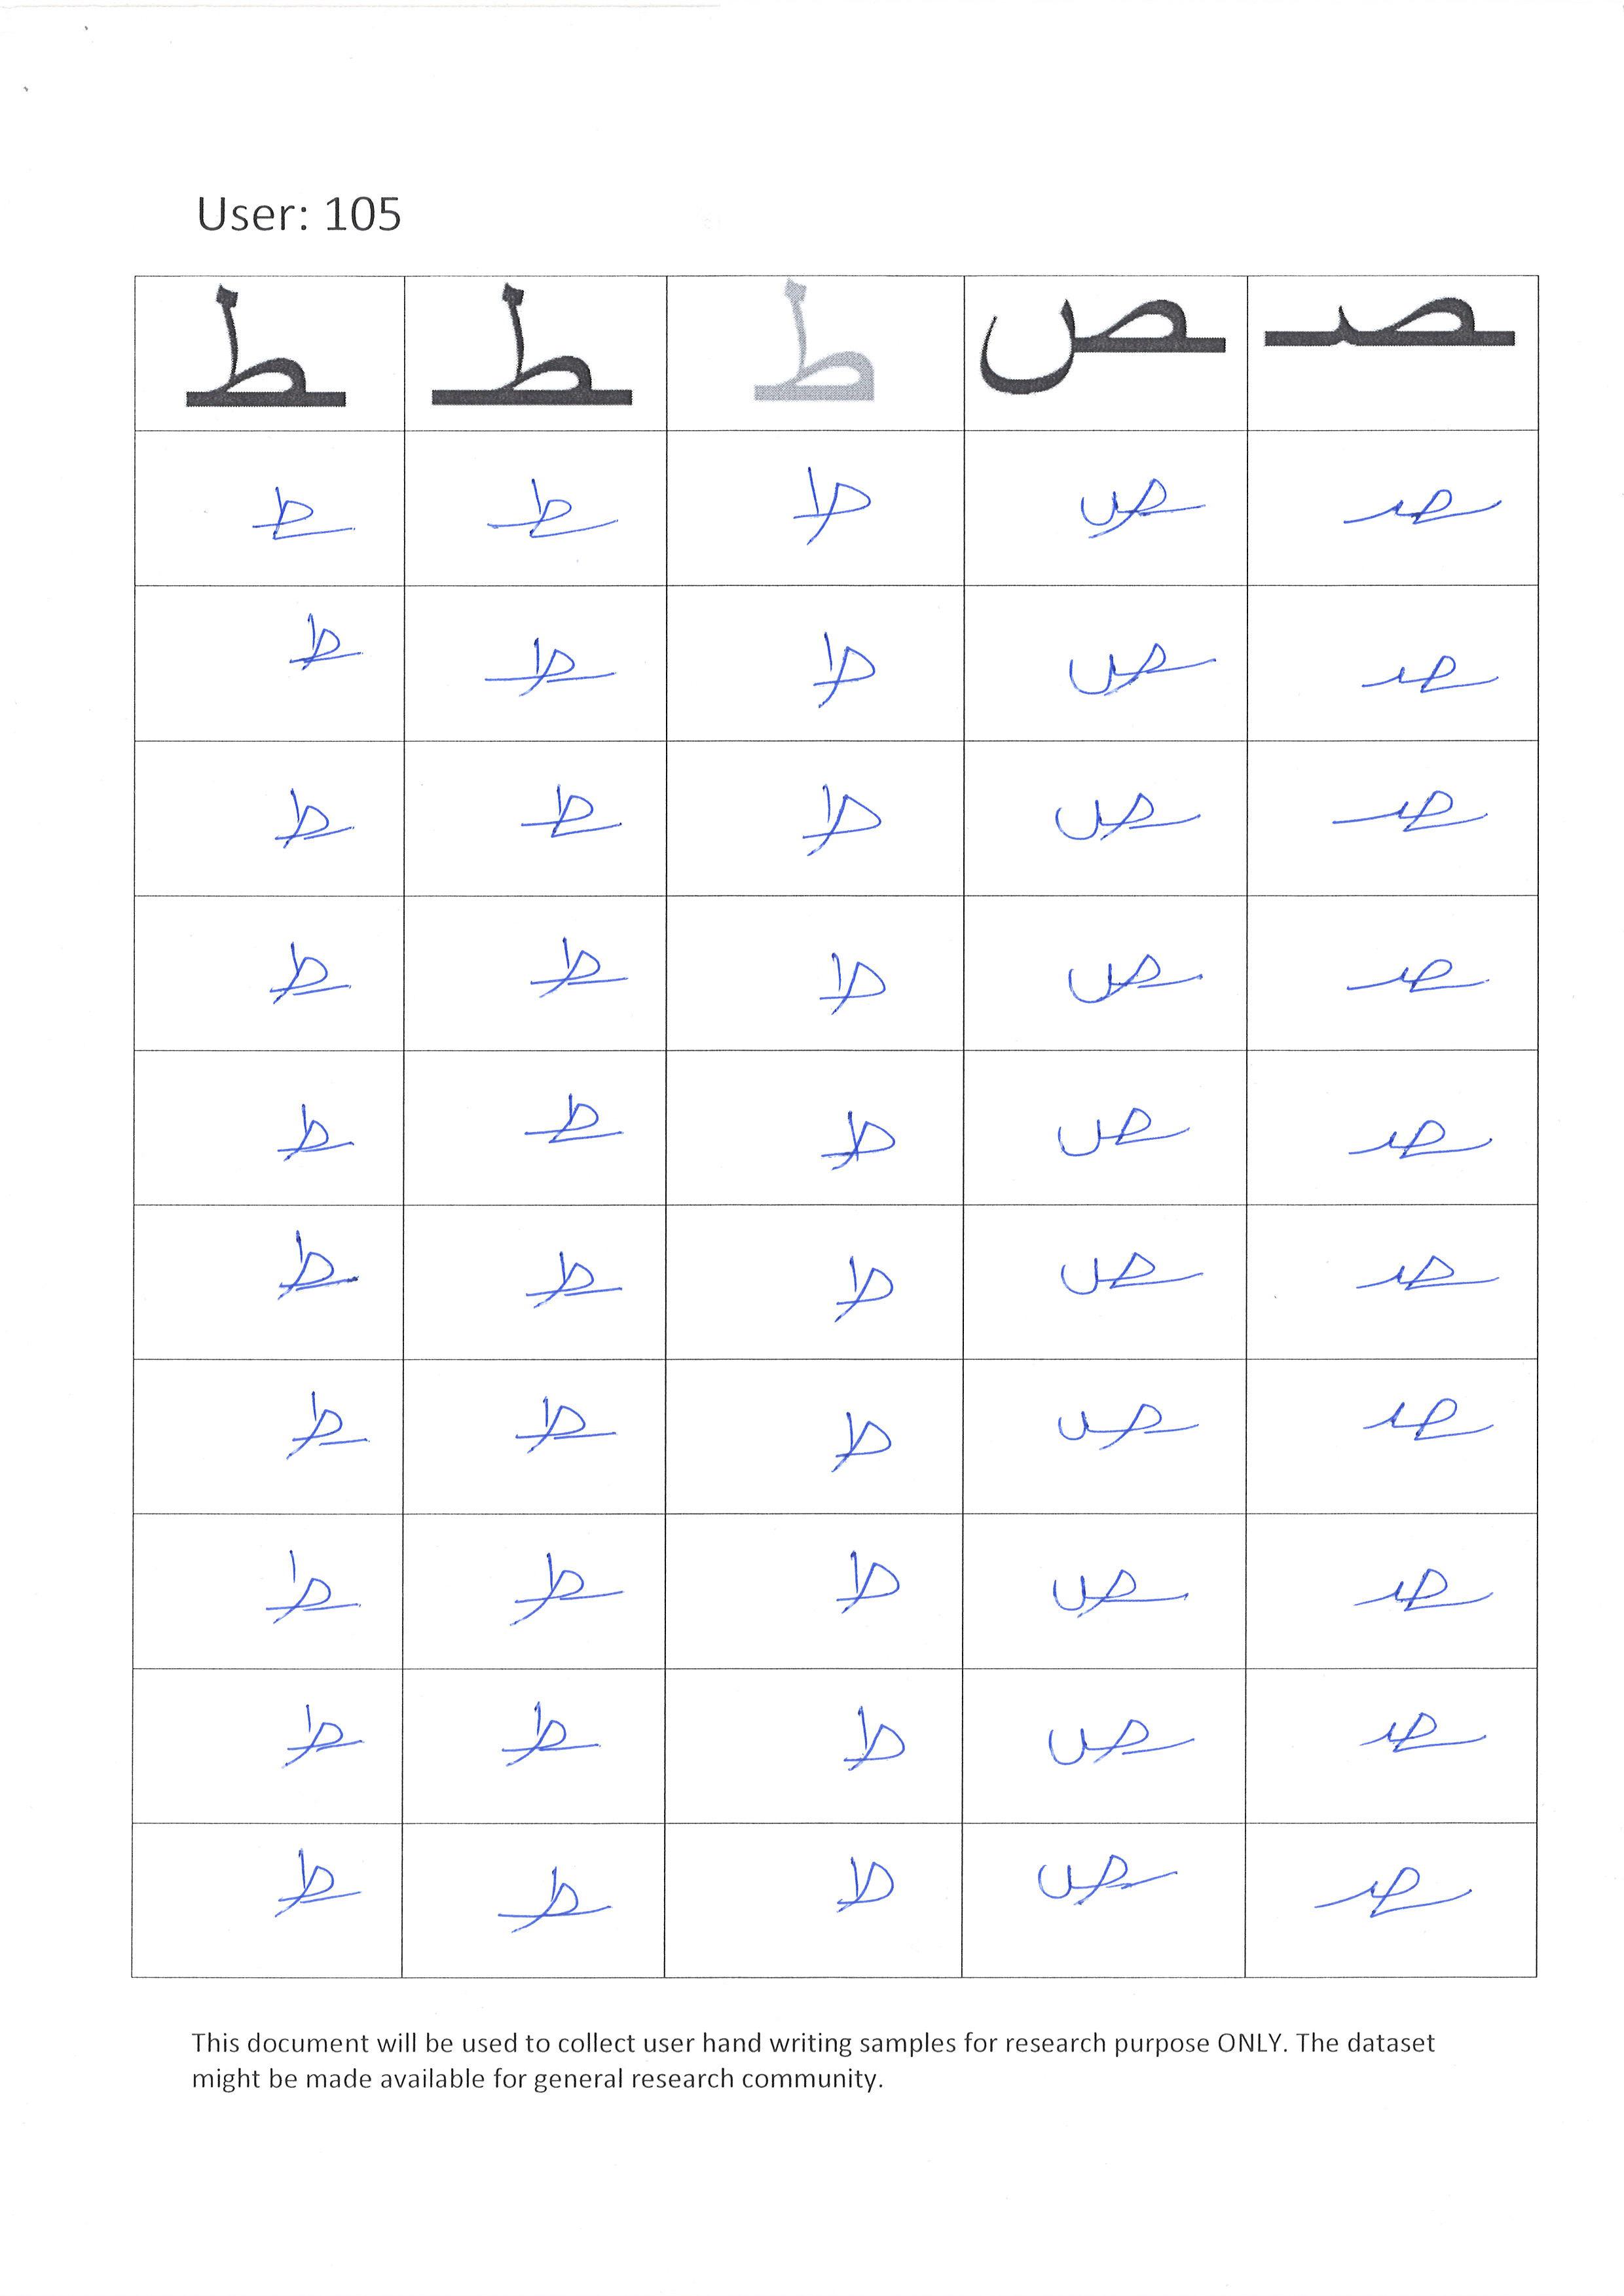 User: 105
ـصـ ـص ط ـطـ ـط
ـصـ ـص ط ـطـ ـط
ـصـ ـص ط ـطـ ـط
ـصـ ـص ط ـطـ ـط
ـصـ ـص ط ـطـ ـط
ـصـ ـص ط ـطـ ـط
ـصـ ـص ط ـطـ ـط
ـصـ ـص ط ـطـ ـط
ـصـ ـص ط ـطـ ـط
ـصـ ـص ط ـطـ ـط
ـصـ ـص ط ـطـ ـط
This document will be used to collect user hand writing samples for research purpose ONLY. The dataset
might be made available for general research community.